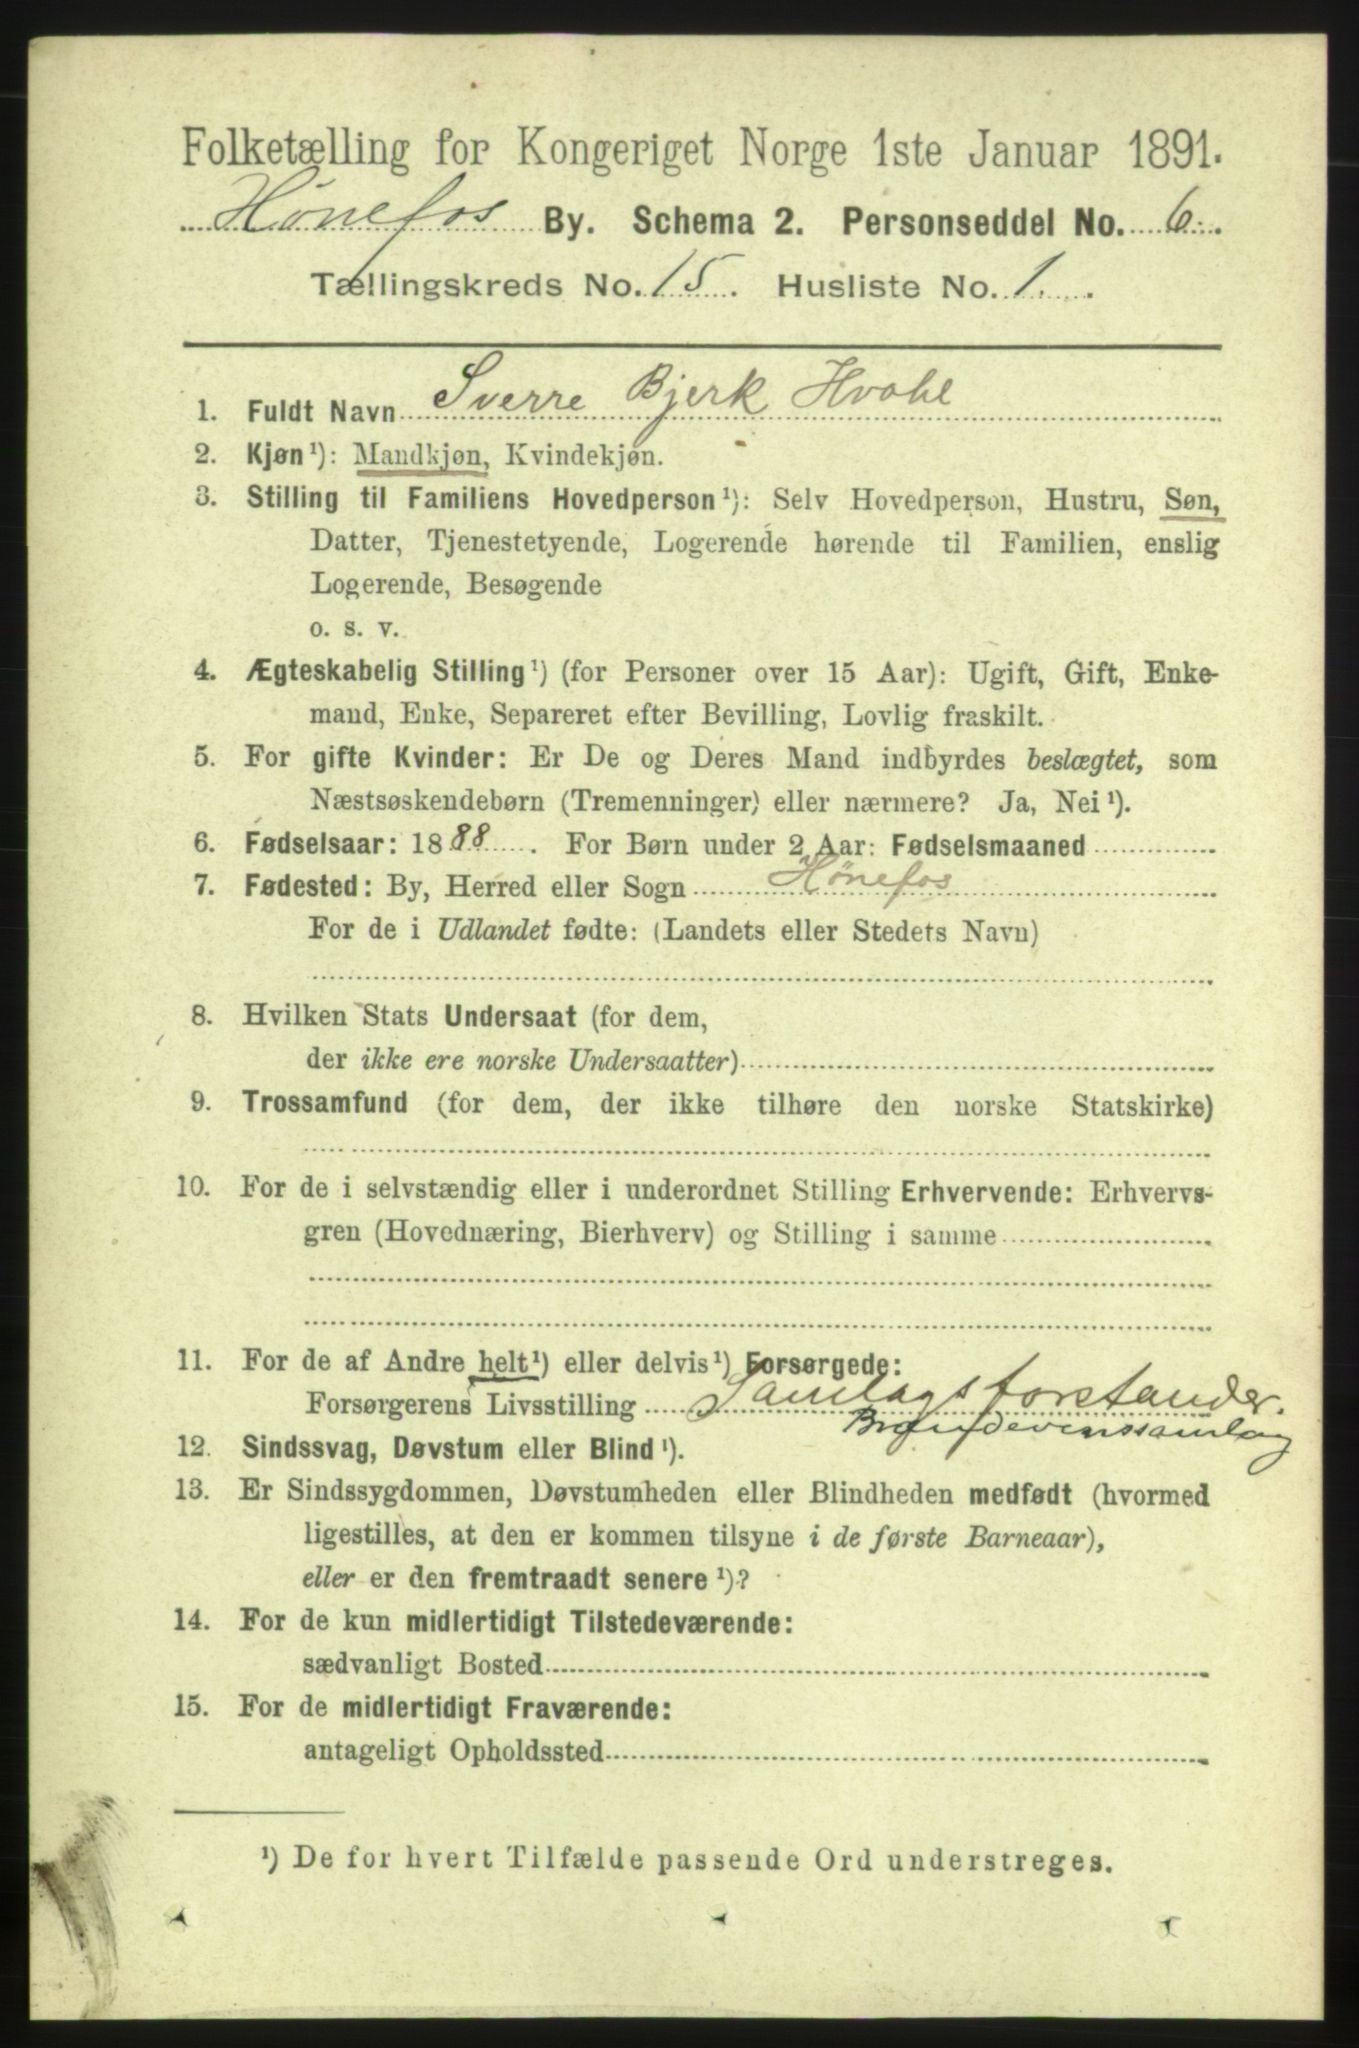 Folketælling for Kongeriget Norge 1ste Januar 1891.
Hønefos By. Schema 2. Personseddel No. 6.
Tællingskreds No. 15. Husliste No. 1.
1. Fuldt Navn Sverre Bjerk Hvohl
2. Kjøn¹): Mandkjøn, Kvindekjøn.
3. Stilling til Familiens Hovedperson¹): Selv Hovedperson, Hustru, Søn,
Datter, Tjenestetyende, Logerende hørende til Familien, enslig
Logerende, Besøgende
o. s. v.
4. Ægteskabelig Stilling¹) (for Personer over 15 Aar): Ugift, Gift, Enke-
mand, Enke, Separeret efter Bevilling, Lovlig fraskilt.
5. For gifte Kvinder: Er De og Deres Mand indbyrdes beslægtet, som
Næstsøskendebørn (Tremenninger) eller nærmere? Ja, Nei¹).
6. Fødselsaar: 1888. For Børn under 2 Aar: Fødselsmaaned
7. Fødested: By, Herred eller Sogn Hønefos
For de i Udlandet fødte: (Landets eller Stedets Navn)
8. Hvilken Stats Undersaat (for dem,
der ikke ere norske Undersaatter)
9. Trossamfund (for dem, der ikke tilhøre den norske Statskirke)
10. For de i selvstændig eller i underordnet Stilling Erhvervende: Erhvervs-
gren (Hovednæring, Bierhverv) og Stilling i samme
11. For de af Andre helt¹) eller delvis¹) Forsørgede:
Forsørgerens Livsstilling Samlagsforstander.
Brændevinssamlag
12. Sindssvag, Døvstum eller Blind¹).
13. Er Sindssygdommen, Døvstumheden eller Blindheden medfødt (hvormed
ligestilles, at den er kommen tilsyne i de første Barneaar),
eller er den fremtraadt senere¹)?
14. For de kun midlertidigt Tilstedeværende:
sædvanligt Bosted
15. For de midlertidigt Fraværende:
antageligt Opholdssted
¹) De for hvert Tilfælde passende Ord understreges.